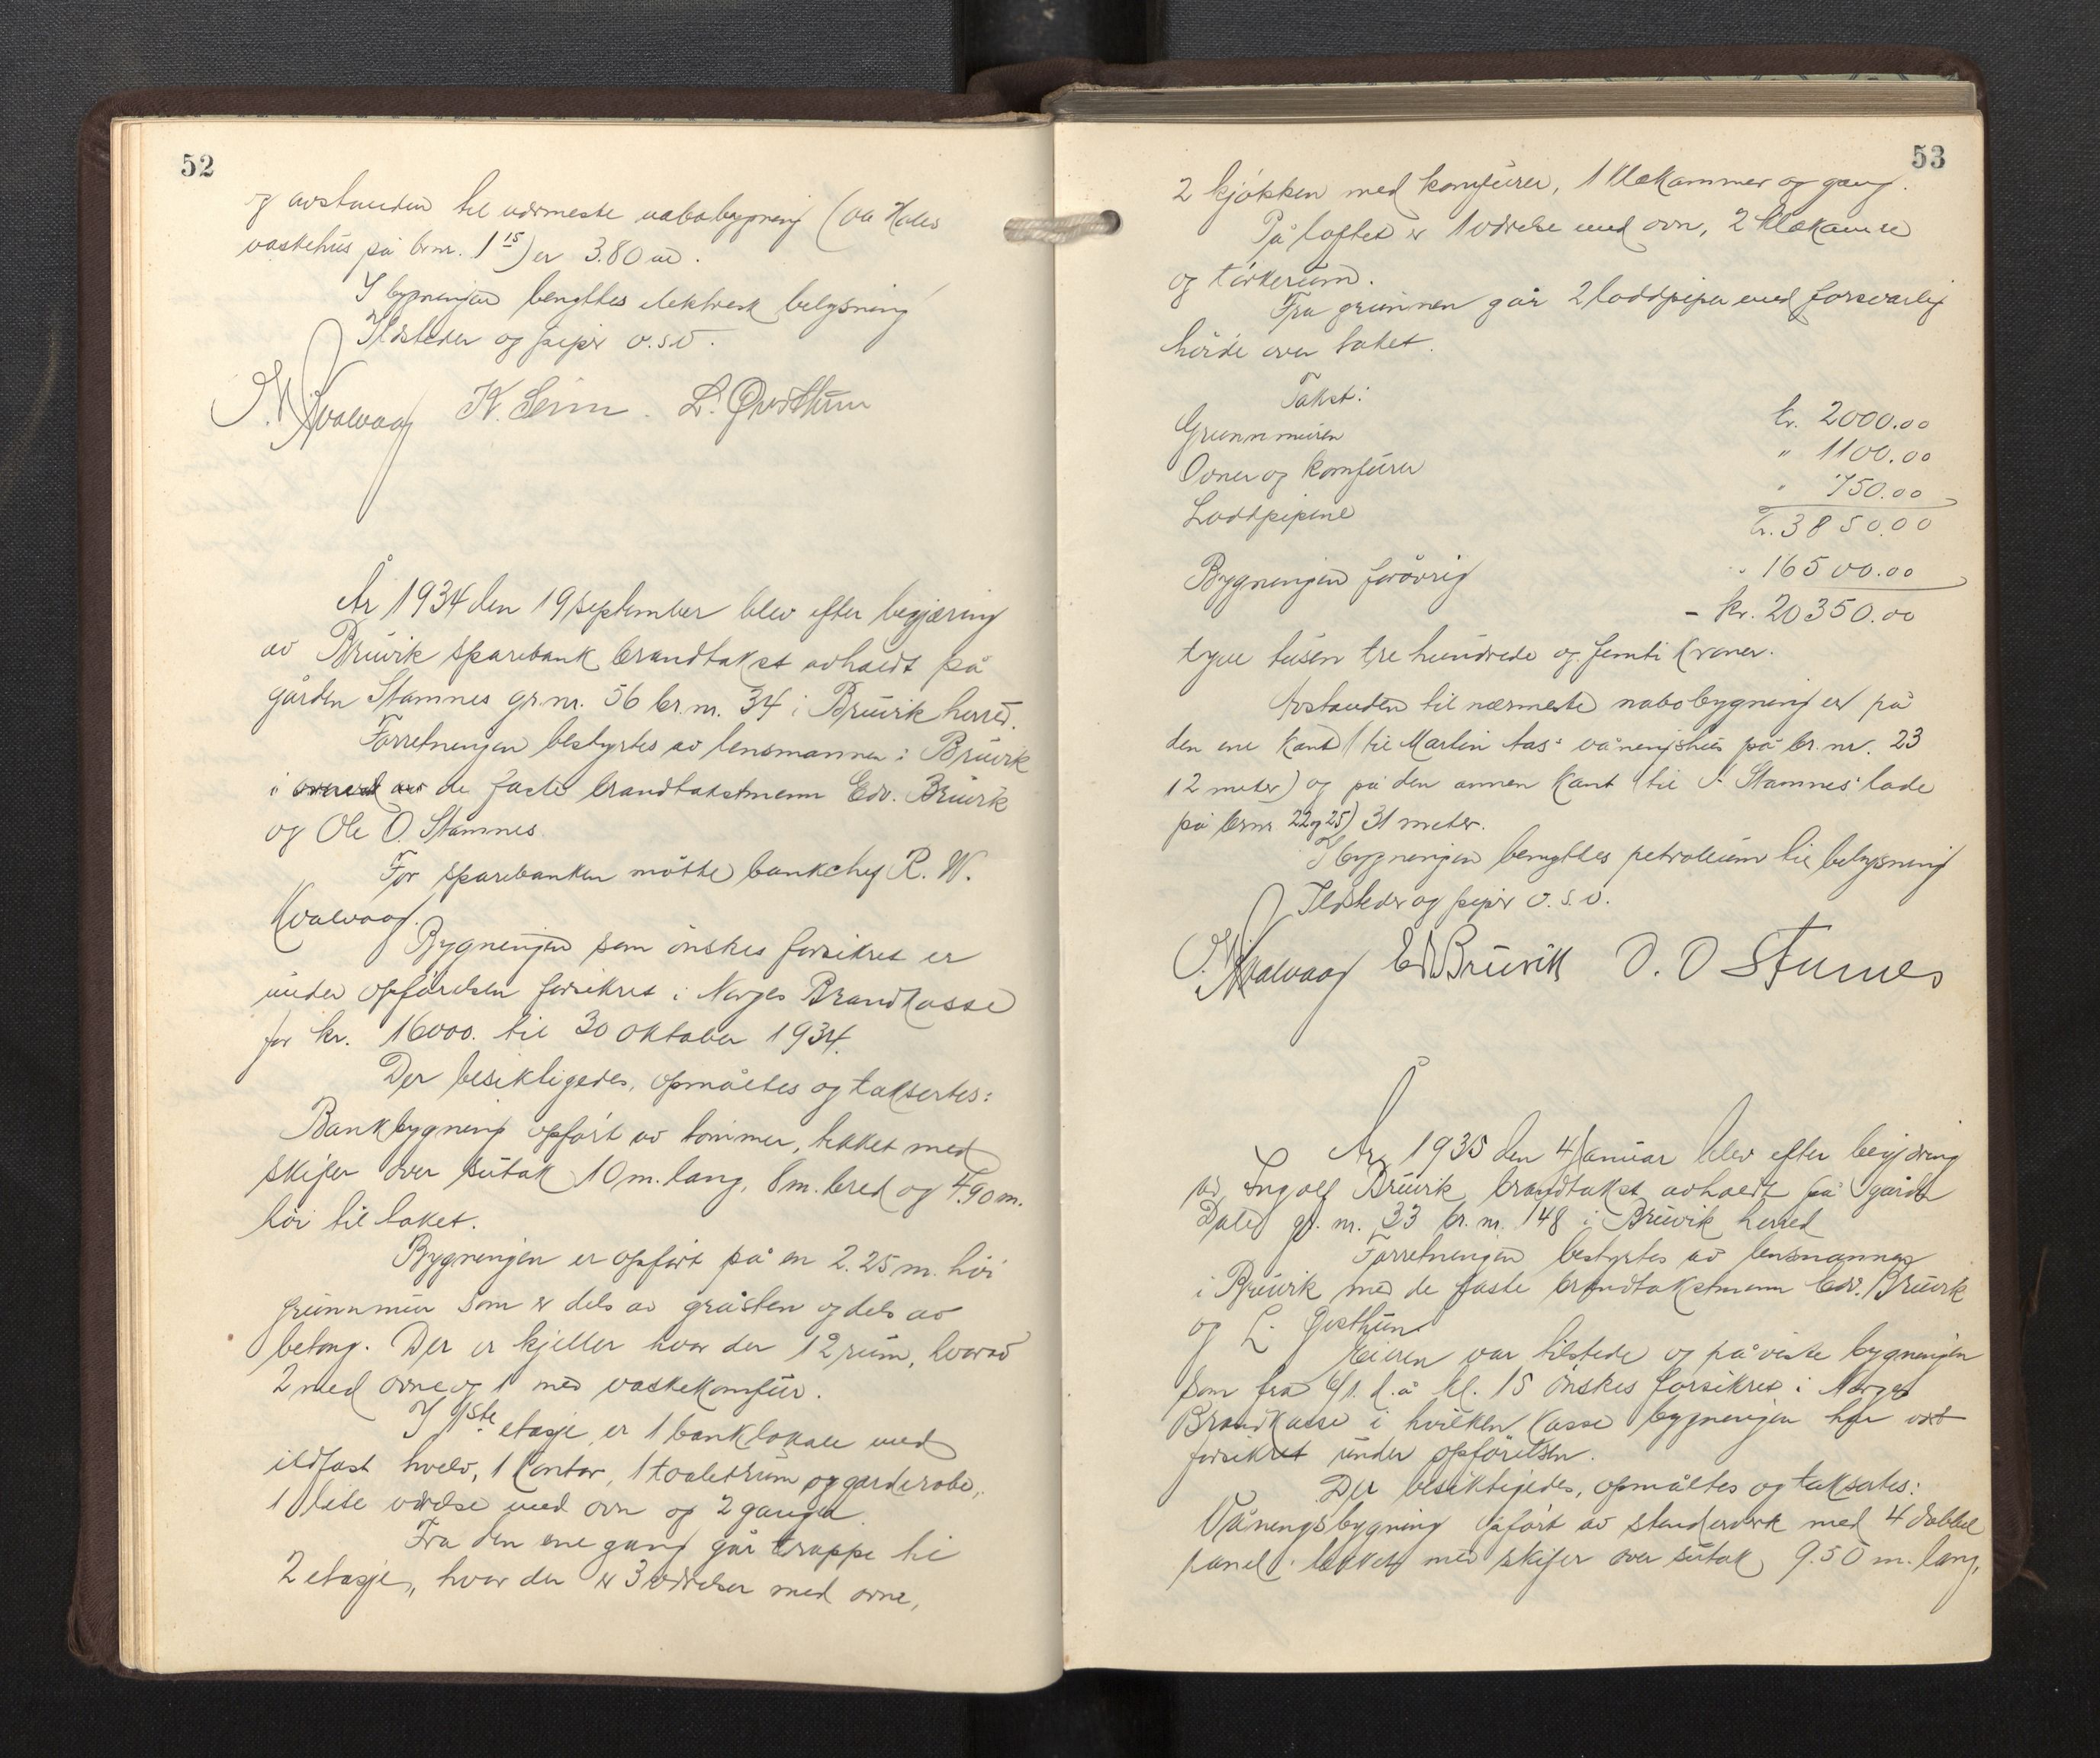 52
og avstanden til nærmeste nabobygning (
vaskehus på brnr. 1 15) er 3.80 m.
I bygningen benyttes elektrisk belysning
Ildsteder og piper o.s.v.
Kvalvaag K. Seim. L. Gjesthun
År 1934 den 19 september blev efter begjæring
av Bruvik sparebank brandtakst avholdt på
gården Stamnes gr.nr. 56 br.nr. 34 i Bruvik herred.
Forretningen bestyrtes av lensmannen i Bruvik
i de faste brandtakstmenn Edv. Bruvik
og Ole O. Stamnes.
For sparebanken møtte bankchef R. W.
Kvalvaag.
Bygningen som ønskes forsikret er
under opførelsen forsikret i Norges Brandkasse
for kr. 16000. til 30 oktober 1934.
Der besiktigedes, opmåltes og taksertes:
Bankbygning opført av tømmer, tekket med
skifer over sutak 10 m. lang, 8 m. bred og 4.90 m.
høi til taket.
Bygningen er opført på en 2.25 m. høi
grunnmur som er dels av gråsten og dels av
betong. Der er kjeller hvor der 12 rum, hvorav
2 med ovne og 1 med vaskekomfur.
I 1ste etasje er 1 banklokale med
ildfast hvelv, 1 kontor, 1 toaletrum og garderobe,
1 lite værelse med ovn og 2 ganger.
Fra den ene gang går trappe til
2 etasje, hvor der er 3 værelser med ovne,
53
2 kjøkken med komfurer, 1 klækammer og gang.
På loftet er 1 værelse med ovn, 2 klækamre
og tørkerum.
Fra grunnen går 2 loddpiper med forsvarlig
høide over taket.
Takst:
Grunnmuren kr. 2000.00
Ovner og komfurer " 1100.00
Loddpipene " 750.00
kr. 3850.00
Bygningen forøvrig " 16500.00
- kr. 20350.00
tyve tusen tre hundrede og femti kroner.
Avstanden til nærmeste nabobygning er på
den ene kant (til Martin Aas' våningshus på br.nr. 23
12 meter) og på den annen kant (til Stamnes' lade
på brnr 22 og 25) 31 meter.
I bygningen benyttes petroleum til belysning
Ildsteder og piper o.s.v.
Kvalvaag Ed Bruvik O. O Stamnes
År 1935 den 4 januar blev efter begjæring
av Ingolf Bruvik brandtakst avholdt på gården
Dale gr. nr. 33 br. nr. 148 i Bruvik herred
Forretningen bestyrtes av lensmannen
i Bruvik med de faste brandtakstmenn Edv. Bruvik
og L. Gjesthun.
Eieren var tilstede og påviste bygningen
som fra 4/1. d.å kl. 15 ønskes forsikret i Norges
Brandkasse i hvilken kasse bygningen har vært
forsikret under opførelsen.
Der besiktigedes, opmåltes og taksertes:
Våningsbygning opført av stenderverk med 4 dobbel
panel. tekket med skifer over sutak, 9.50 m. lang,